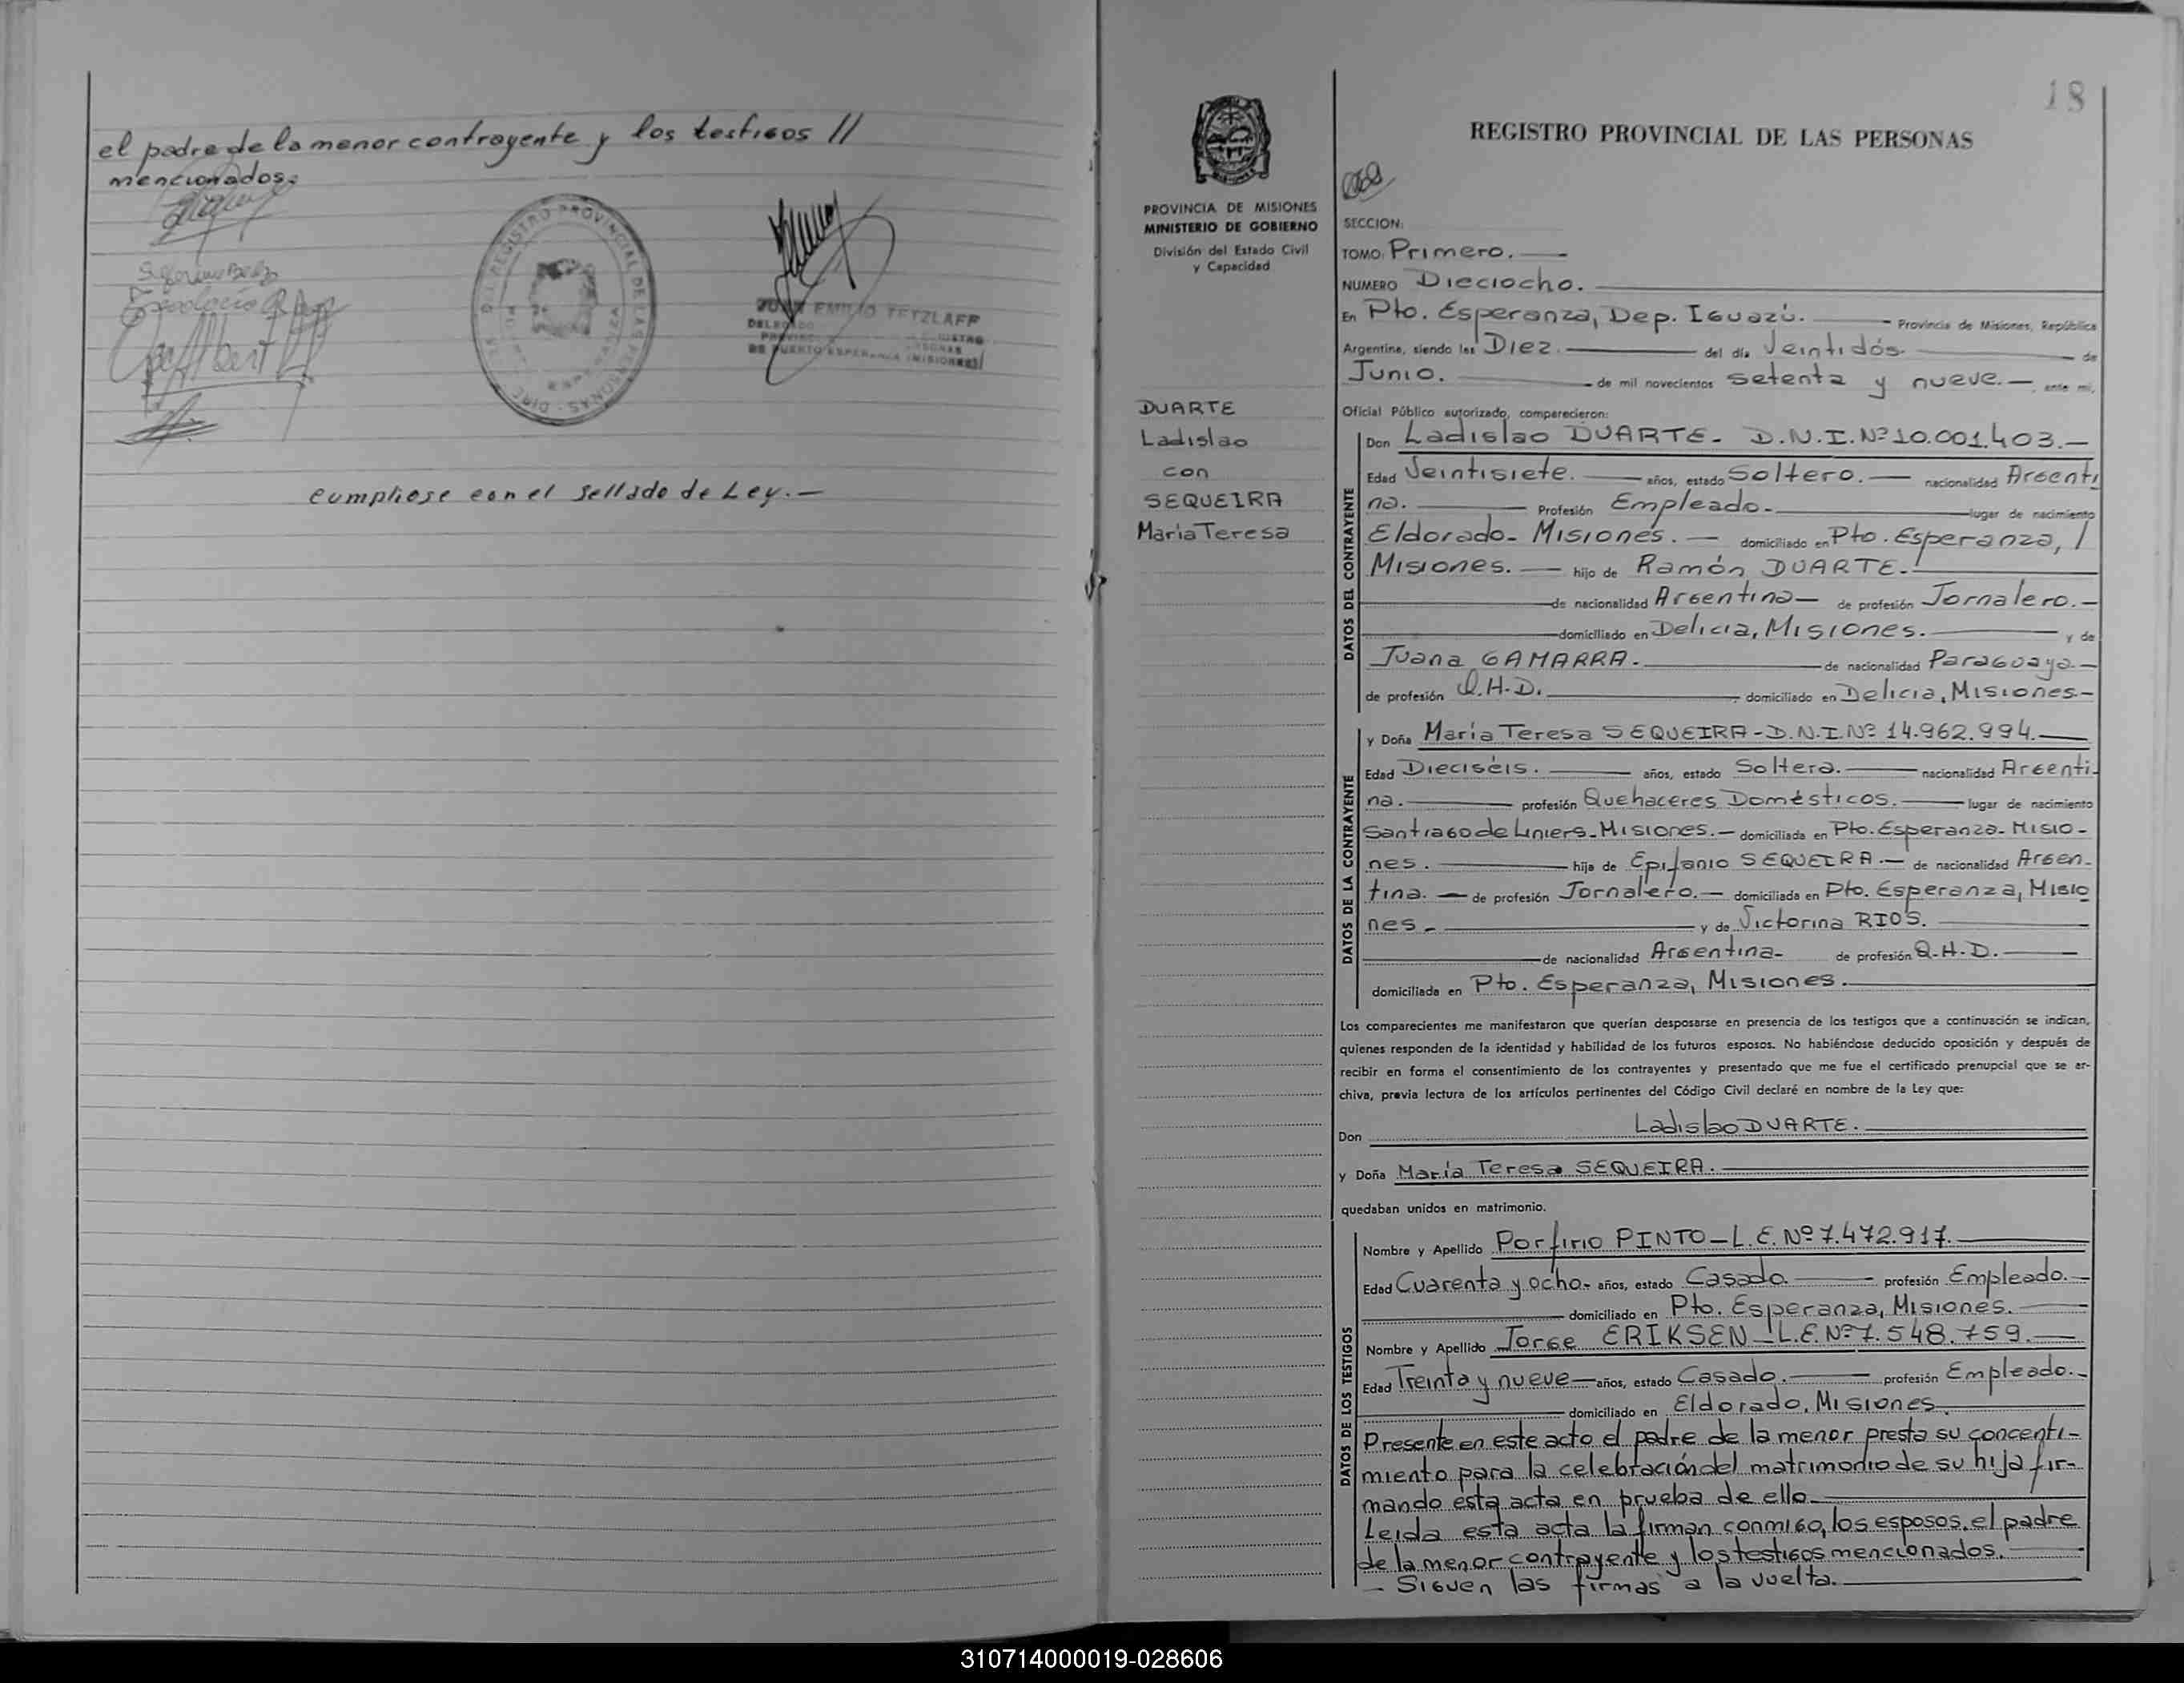 el padre de la menor contrayente y los testigos //
mencionados.
JUAN EMILIO TETZLAFF
DE PUERTO ESPERANZA (MISIONES)
cumpliose con el sellado de Ley.—
18
PROVINCIA DE MISIONES
MINISTERIO DE GOBIERNO
División del Estado Civil
y Capacidad
DUARTE
Ladislao
con
SEQUEIRA
María Teresa
REGISTRO PROVINCIAL DE LAS PERSONAS
SECCION:
TOMO: Primero.—
NUMERO Dieciocho.—
En Pto. Esperanza, Dep. Iguazú.— Provincia de Misiones, República
Argentina, siendo las Diez.— del día Veintidós.— de
Junio.— de mil novecientos setenta y nueve.— ante mí,
Oficial Público autorizado, comparecieron:
DATOS DEL CONTRAYENTE
Don Ladislao DUARTE- D.N.I.Nº 10.001.403.—
Edad Veintisiete.— años, estado Soltero.— nacionalidad Argenti
na.— Profesión Empleado.— lugar de nacimiento
Eldorado- Misiones.— domiciliado en Pto. Esperanza, /
Misiones.— hijo de Ramón DUARTE.—
—de nacionalidad Argentina— de profesión Jornalero.—
—domiciliado en Delicia, Misiones.— y de
Juana GAMARRA.— de nacionalidad Paraguaya.—
de profesión Q.H.D.— domiciliado en Delicia, Misiones—
DATOS DE LA CONTRAYENTE
y Doña María Teresa SEQUEIRA-D.N.I.Nº 14.962.994.—
Edad Dieciséis.— años, estado Soltera.— nacionalidad Argenti-
na.— profesión Quehaceres Domésticos.— lugar de nacimiento
Santiago de Liniers-Misiones.— domiciliada en Pto. Esperanza- Misio-
nes.— hija de Epifanio SEQUEIRA.— de nacionalidad Argen-
tina.— de profesión Jornalero.— domiciliada en Pto. Esperanza, Misio
nes.— y de Victorina RIOS.—
—de nacionalidad Argentina- de profesión Q.H.D.—
domiciliada en Pto. Esperanza, Misiones.—
Los comparecientes me manifestaron que querían desposarse en presencia de los testigos que a continuación se indican,
quienes responden de la identidad y habilidad de los futuros esposos. No habiéndose deducido oposición y después de
recibir en forma el consentimiento de los contrayentes y presentado que me fue el certificado prenupcial que se ar-
chiva, previa lectura de los artículos pertinentes del Código Civil declaré en nombre de la Ley que:
Don Ladislao DUARTE.—
y Doña María Teresa SEQUEIRA.—
quedaban unidos en matrimonio.
DATOS DE LOS TESTIGOS
Nombre y Apellido Porfirio PINTO—L.E. Nº 7.472.917.—
Edad Cuarenta y ocho- años, estado Casado.— profesión Empleado.—
—domiciliado en Pto. Esperanza, Misiones.—
Nombre y Apellido Jorge ERIKSEN—L.E. Nº 7.548.759.—
Edad Treinta y nueve—años, estado Casado.— profesión Empleado.-
—domiciliado en Eldorado, Misiones.
Presente en este acto el padre de la menor presta su concenti-
miento para la celebración del matrimonio de su hija fir-
mando esta acta en prueba de ello.—
Leida esta acta la firman conmigo, los esposos, el padre
de la menor contrayente y los testigos mencionados.—
— Siguen las firmas a la vuelta.—
310714000019-028606